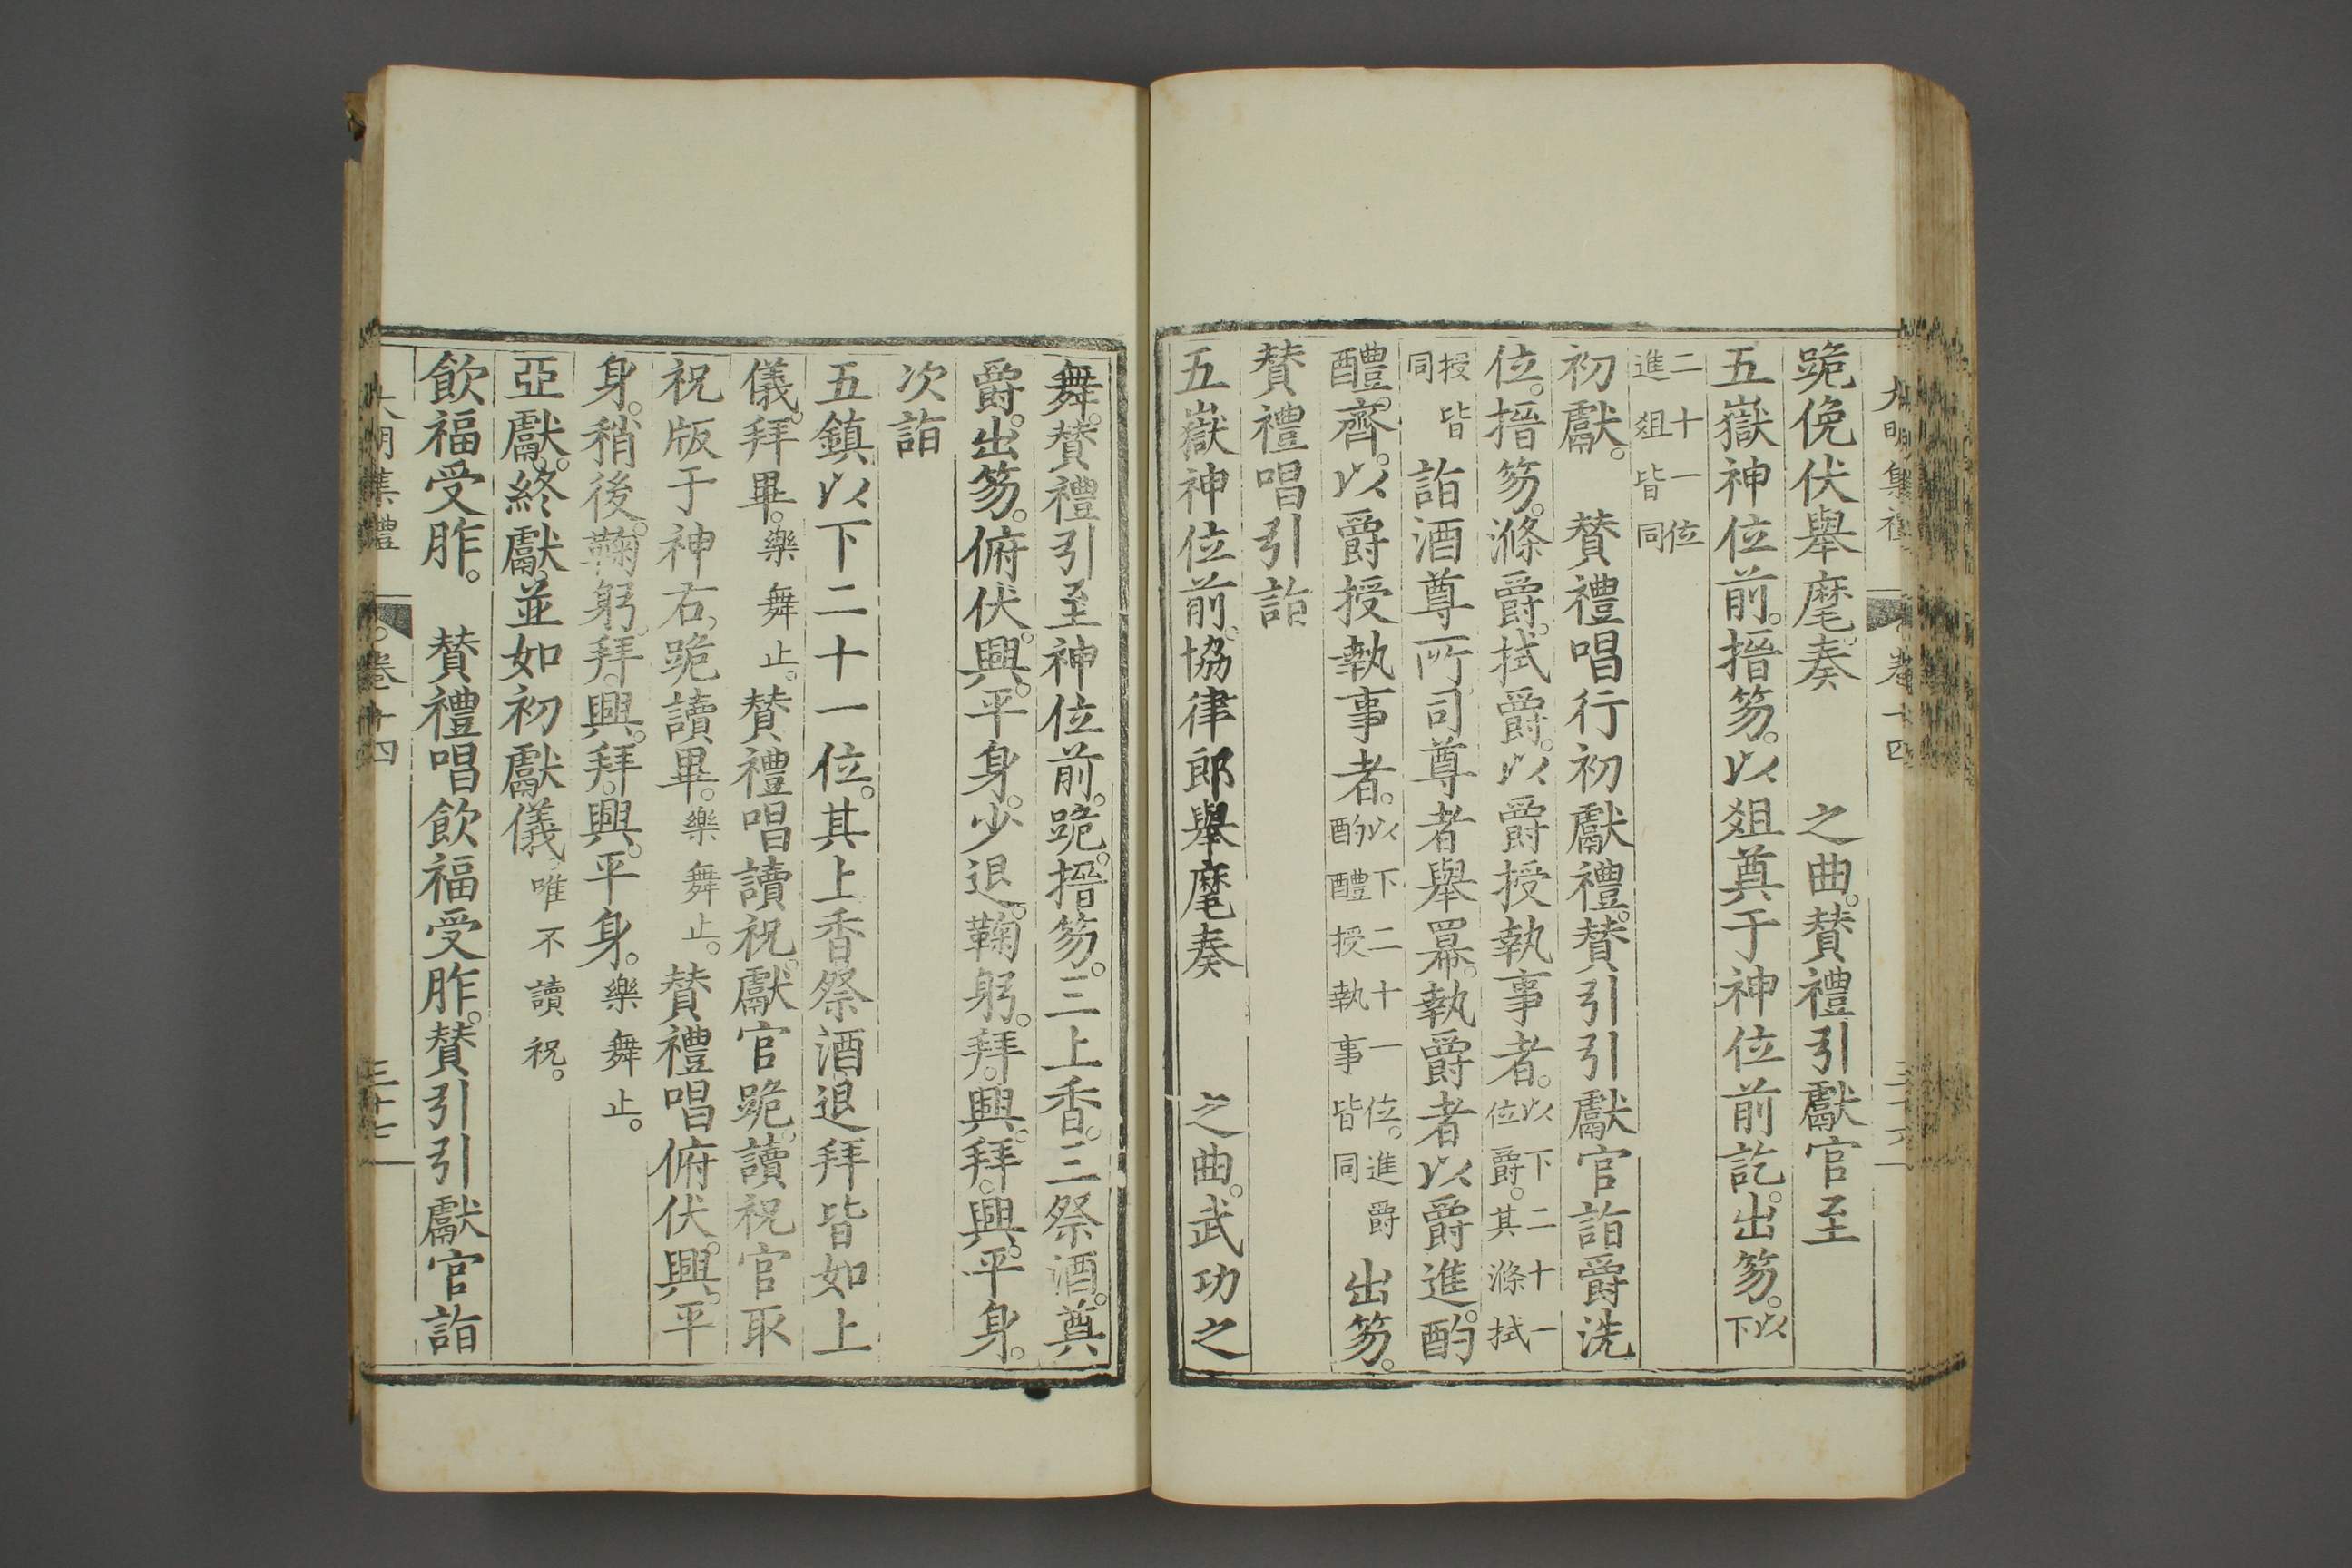 大明集禮 卷十四 三十六
跪俛伏舉麾奏 之曲。贊禮引獻官至
五嶽神位前。搢笏。以俎奠于神位前訖。出笏。以下
二十一位進俎皆同
初獻。 贊禮唱行初獻禮。贊引引獻官詣爵洗
位。搢笏。滌爵。拭爵。以爵授執事者。以下二十一位爵。其滌拭
授皆同 詣酒尊所司尊者舉羃。執爵者以爵進。酌
醴。齊。以爵授執事者。以下二十一位。進爵酌醴授執事皆同 出笏。
贊禮唱引詣
五嶽神位前。協律郎舉麾奏 之曲。武功之
舞。贊禮引至神位前。跪。搢笏。三上香。三祭酒。奠
爵。出笏。俯伏。興。平身。少退。鞠躬。拜。興。拜。興。平身。
次詣
五鎮以下二十一位。其上香祭酒退拜皆如上
儀。拜畢。樂舞止。贊禮唱讀祝。獻官跪。讀祝官取
祝版于神右。跪讀畢。樂舞止。贊禮唱俯伏。興。平
身。稍後。鞠躬。拜。興。拜。興。平身。樂舞止。
亞獻。終獻。並如初獻儀。唯不讀祝。
飲福受胙。 贊禮唱飲福受胙。贊引引獻官詣
大明集禮 卷十四 三十七